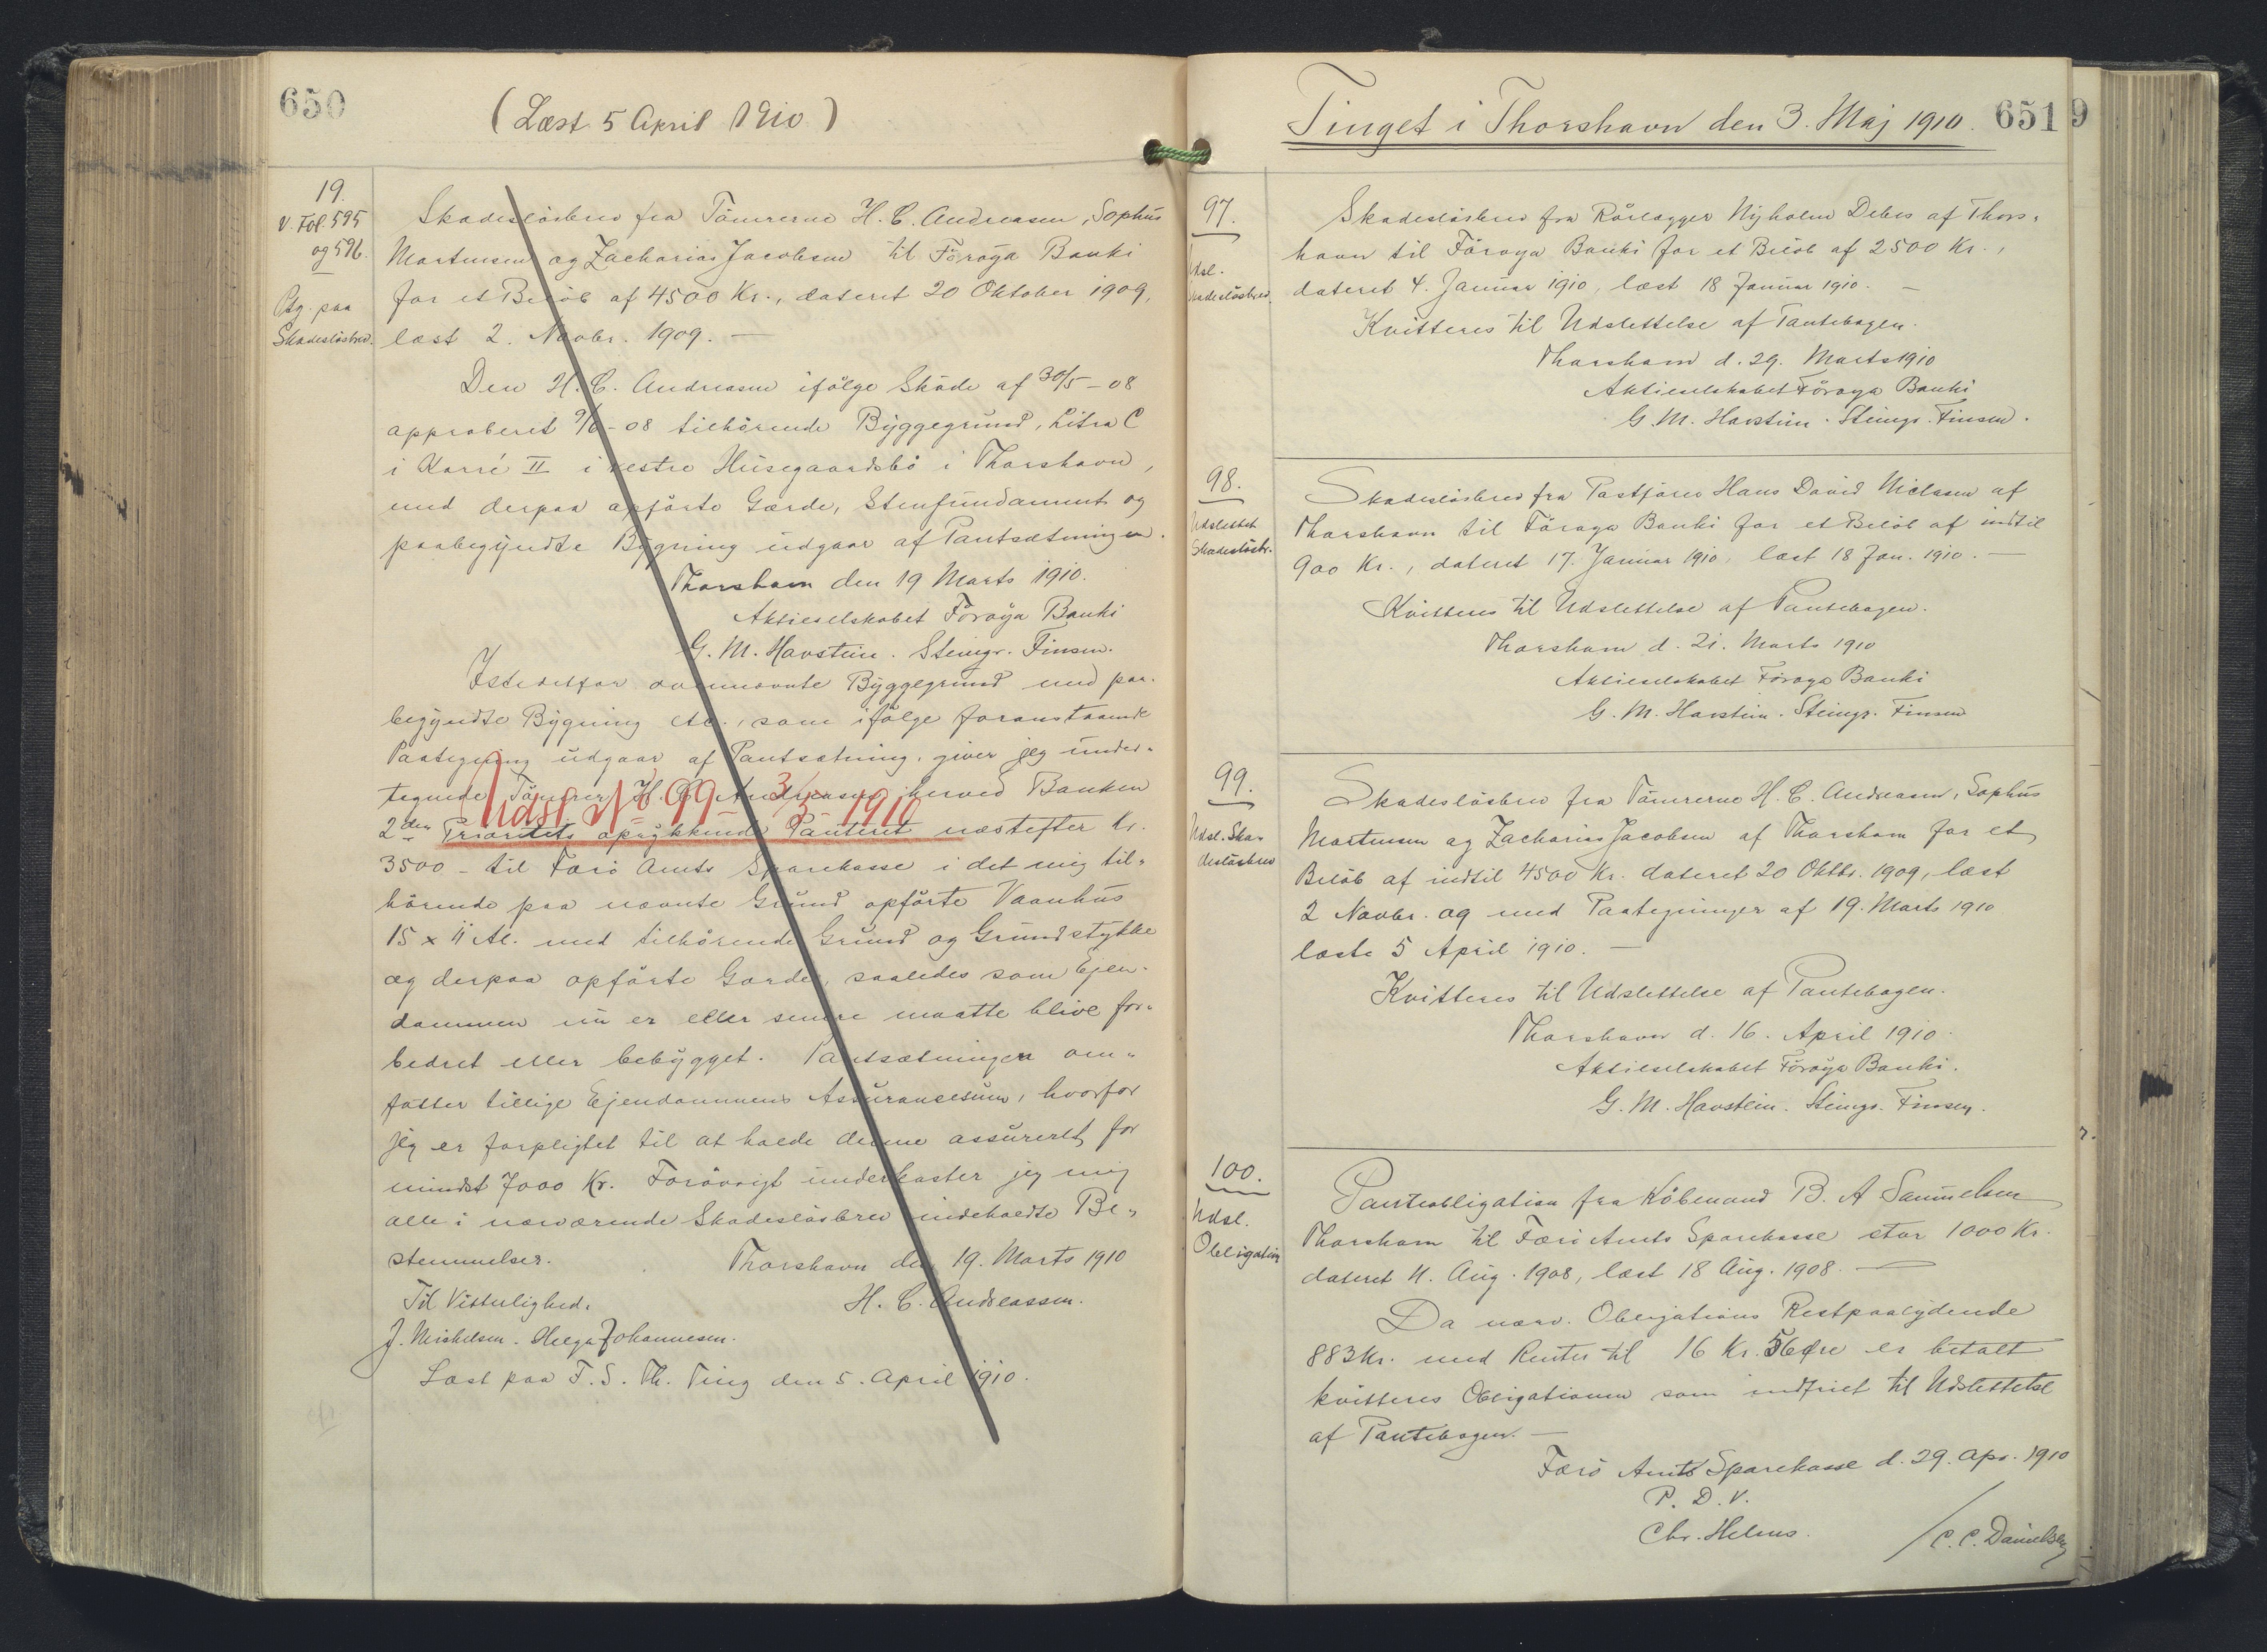 650
(Læst 5 April 1910)
19.
V. Fol. 595
og 596.
Ptg. paa
Skadesløsbrev.
Skadesløsbrev fra Tømrerne H. C. Andreasen, Sophus
Mortensen og Zacharias Jacobsen til Föroya Banki
for et Beløb af 4500 Kr., dateret 20 Oktober 1909,
læst 2. Novbr. 1909. —
Den H. C. Andreasen ifølge Skøde af 30/5-08
approberet 9/6-08 tilhørende Byggegrund, Litra C
i Karré II i vestre Húsegaardsbø i Thorshavn,
med derpaa opførte Gærde, Stenfundament og
paabegyndte Bygning udgaar af Pantsætningen.
Thorshavn den 19 Marts 1910.
Aktieselskabet Föroya Banki
G. M. Havstein. Steingr. Finsen.
Istedetfor ovennævnte Byggegrund med paa-
begyndte Bygning etc., som ifølge foranstaaende
Paategning udgaar af Pantsætning, giver jeg under-
tegnede Tømrer H. C. Andreasen herved Banken
Udsl. № 99 - 3/5 - 1910
2den Prioritets oprykkende Panteret næstefter Kr.
3500 - til Færø Amts Sparekasse i det mig til-
hørende paa nævnte Grund opførte Vaanhus
15 x 11 Al. med tilhørende Grund og Grundstykke
og derpaa opførte Gærder, saaledes som Ejen-
dommen nu er eller senere maatte blive for-
bedret eller bebygget. Pantsætningen om-
fatter tillige Ejendommens Assurancesum, hvorfor
jeg er forpligtet til at holde denne assureret for
mindst 7000 Kr. Forøvrigt underkaster jeg mig
alle i nærværende Skadesløsbrev indeholdte Be-
stemmelser.
Thorshavn den 19. Marts 1910
Til Vitterlighed.
H. C. Andreassen.
J. Michelsen. Helga Johannesen.
Læst paa F. S. Th. Ting den 5. April 1910.
Tinget i Thorshavn den 3. Maj 1910.
651
9
97.
Udsl.
Skadesløsbrev
Skadesløsbrev fra Rørlægger Nyholm Debes af Thors-
havn til Föroya Banki for et Beløb af 2500 Kr.,
dateret 4. Januar 1910, læst 18 Januar 1910. —
Kvitteres til Udslettelse af Pantebogen.
Thorshavn d. 29. Marts 1910
Aktieselskabet Föroya Banki
G. M. Havstein. Steingr. Finsen.
98.
Udslettet
Skadesløsbr.
Skadesløsbrev fra Postfører Hans David Nielsen af
Thorshavn til Föroya Banki for et Beløb af indtil
900 Kr., dateret 17. Januar 1910, læst 18 Jan. 1910. —
Kvitteres til Udslettelse af Pantebogen.
Thorshavn d. 21. Marts 1910
Aktieselskabet Föroya Banki
G. M. Havstein. Steingr. Finsen
99.
Udsl. Ska-
desløsbrev
Skadesløsbrev fra Tømrerne H. C. Andreasen, Sophus
Mortensen og Zacharias Jacobsen af Thorshavn for et
Beløb af indtil 4500 Kr. dateret 20 Oktbr. 1909, læst
2 Novbr. og med Paategninger af 19. Marts 1910
læste 5 April 1910. —
Kvitteres til Udslettelse af Pantebogen.
Thorshavn d. 16. April 1910.
Aktieselskabet Föroya Banki.
G. M. Havstein. Steingr. Finsen.
100.
Udsl.
Obligation
Panteobligation fra Købmand B. A Samuelsen
Thorshavn til Færø Amts Sparekasse stor 1000 Kr.
dateret 11. Aug. 1908, læst 18 Aug. 1908. —
Da nærv. Obligations Restpaalydende
883 Kr. med Renter til 16 Kr. 56 Øre er betalt
kvitteres Obligationen som indfriet til Udslettelse
af Pantebogen. —
Færø Amts Sparekasse d. 29. Apr. 1910
P. D. V.
Chr. Helms.
/ C. C. Danielsen